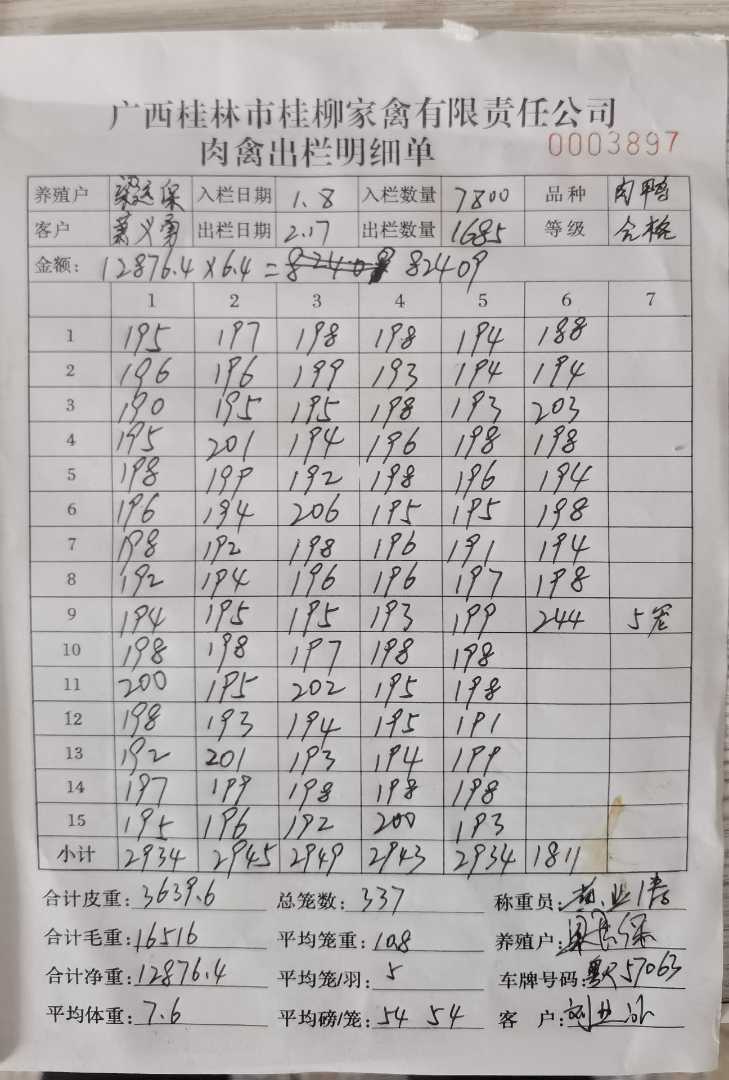 广西桂林市桂柳家禽有限责任公司
肉禽出栏明细单 0003897
养殖户 梁远保 入栏日期 1.8 入栏数量 7800 品种 肉鸭
客户 萧义勇 出栏日期 2.17 出栏数量 1685 等级 合格
金额: 12876.4×6.4= 82409
1 2 3 4 5 6 7
1 195 197 198 198 194 188
2 196 196 199 193 194 194
3 190 195 195 198 193 203
4 195 201 194 196 198 198
5 198 199 192 198 196 194
6 196 194 206 195 195 198
7 198 192 198 196 191 194
8 192 194 196 196 197 198
9 194 195 195 193 199 244 5笼
10 198 198 197 198 198
11 200 195 202 195 198
12 198 193 194 195 191
13 192 201 193 194 199
14 197 199 198 198 198
15 195 196 192 200 193
小计 2934 2945 2949 2943 2934 1811
合计皮重: 3639.6 总笼数: 337 称重员:
合计毛重: 16516 平均笼重: 10.8 养殖户: 梁远保
合计净重: 12876.4 平均笼/羽: 5 车牌号码: 57063
平均体重: 7.6 平均磅/笼: 54 54 客 户: